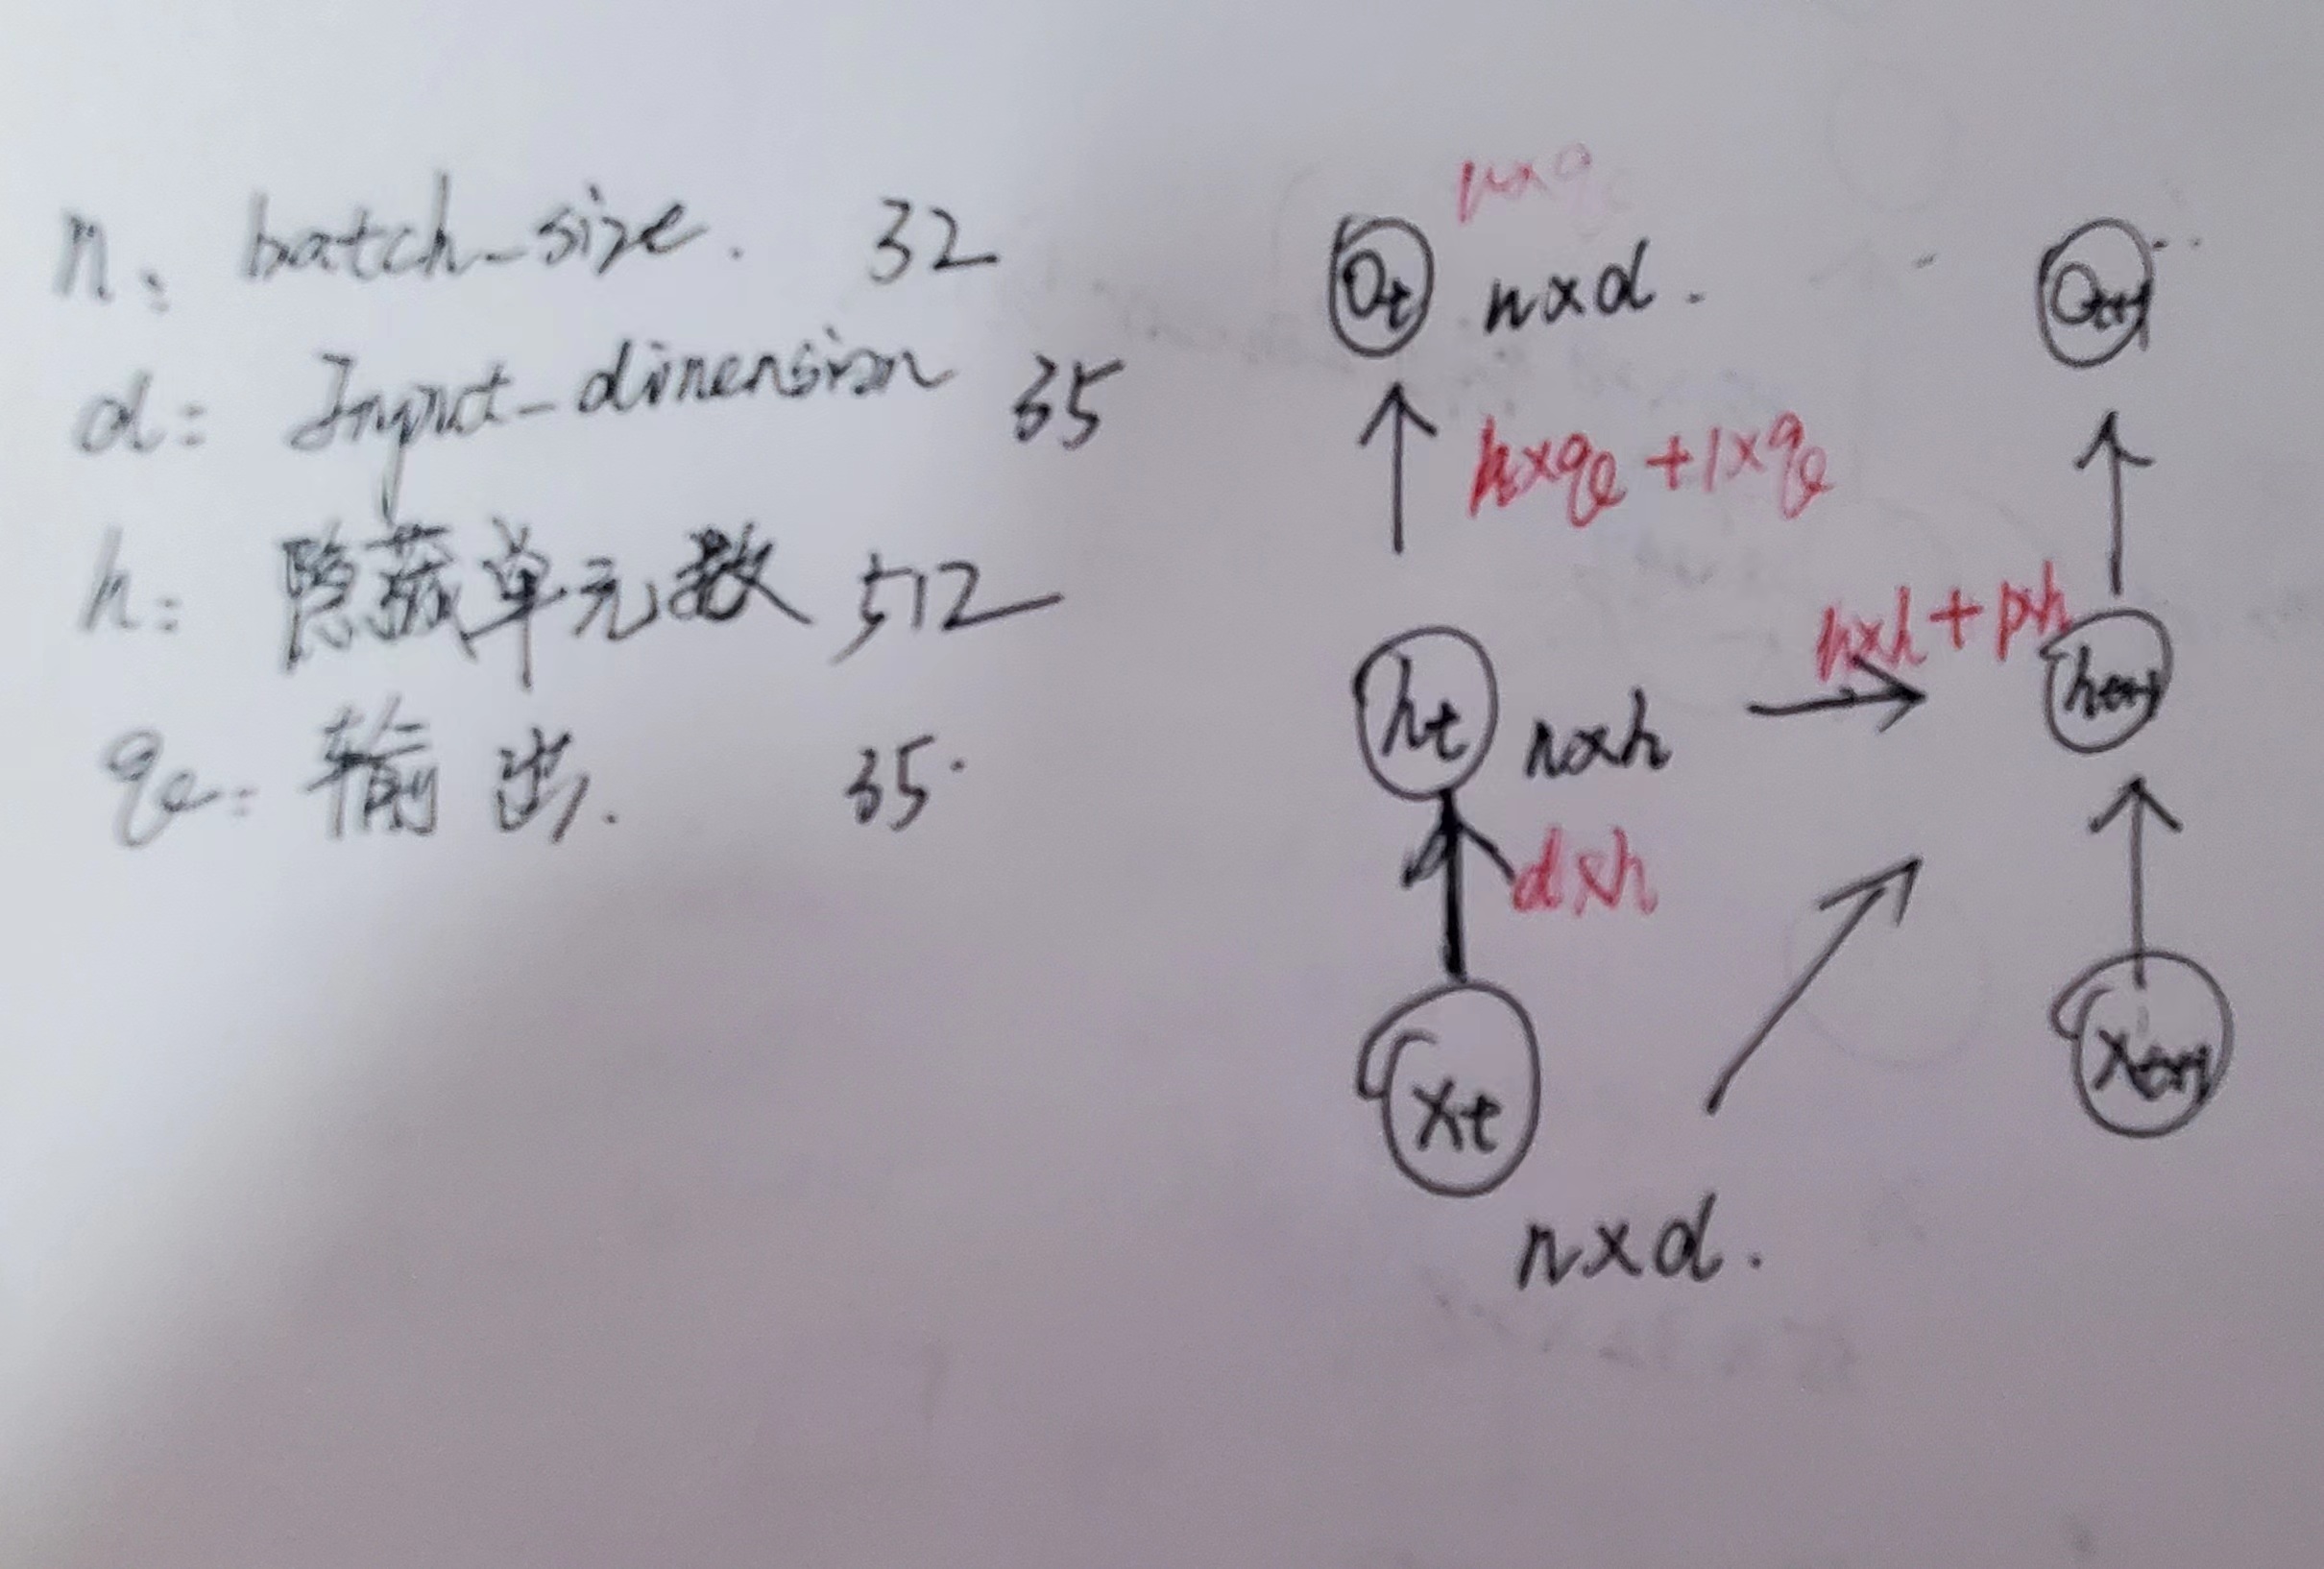 n: batch-size. 32
d: Input-dimension 35
h: 隐藏单元数 512
q: 输出. 35.
n×q
Ot n×d.
Ot+1
h×q + 1×q
h×h + 1×h
ht n×h
ht+1
d×h
Xt
Xt+1
n×d.